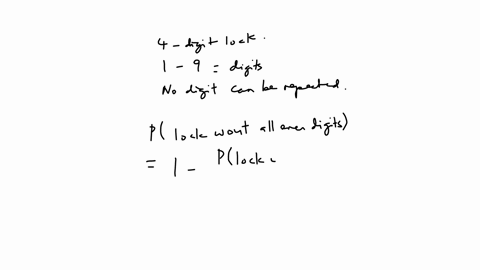 4 - digit lock .
1 - 9 = digits
No digit can be repeated .
P( lock wont all even digits)
= 1 - P(lock